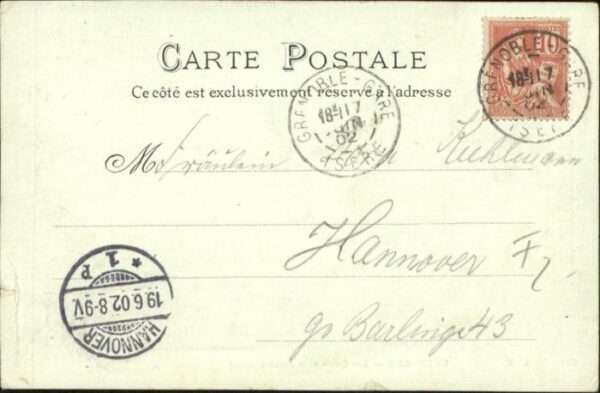 CARTE POSTALE
Ce côté est exclusivement réservé à l'adresse
GRENOBLE-GARE
18E 17
JUIN
02
ISÈRE
GRENOBLE-GARE
18E 17
JUIN
02
ISÈRE
10
M Fräulein Kuhlmann
Hannover
43
HANNOVER
19.6.02.8-9V.
* 1 P